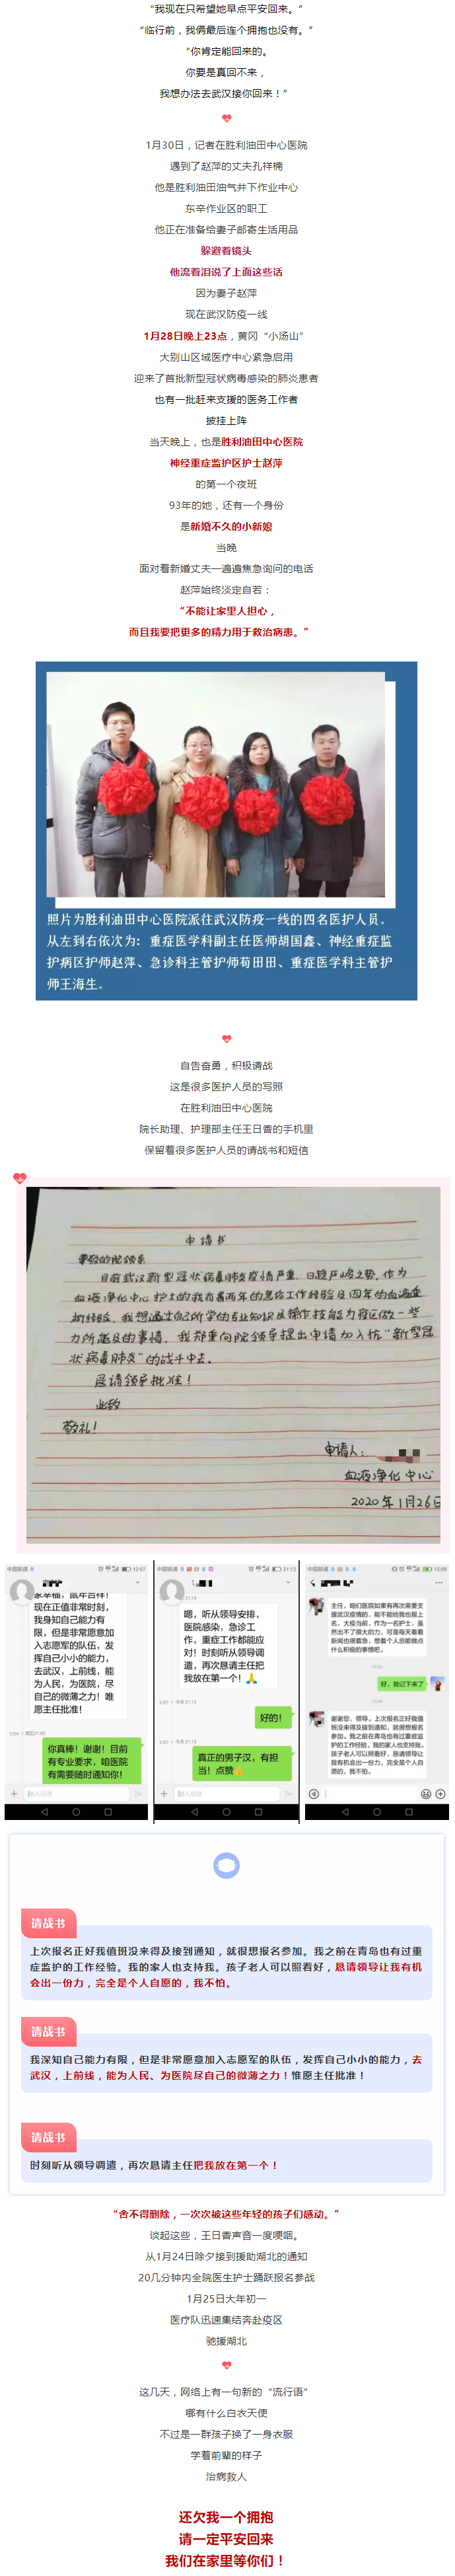 “我现在只希望她早点平安回来。”
“临行前，我俩最后连个拥抱也没有。”
“你肯定能回来的。
你要是真回不来，
我想办法去武汉接你回来！”
1月30日，记者在胜利油田中心医院
遇到了赵萍的丈夫孔祥楠
他是胜利油田油气井下作业中心
东辛作业区的职工
他正在准备给妻子邮寄生活用品
躲避着镜头
他流着泪说了上面这些话
因为妻子赵萍
现在武汉防疫一线
1月28日晚上23点，黄冈“小汤山”
大别山区域医疗中心紧急启用
迎来了首批新型冠状病毒感染的肺炎患者
也有一批赶来支援的医务工作者
披挂上阵
当天晚上，也是胜利油田中心医院
神经重症监护区护士赵萍
的第一个夜班
93年的她，还有一个身份
是新婚不久的小新娘
当晚
面对着新婚丈夫一遍遍焦急询问的电话
赵萍始终淡定自若：
“不能让家里人担心，
而且我要把更多的精力用于救治病患。”
照片为胜利油田中心医院派往武汉防疫一线的四名医护人员。
从左到右依次为：重症医学科副主任医师胡国鑫、神经重症监
护病区护师赵萍、急诊科主管护师荀田田、重症医学科主管护
师王海生。
自告奋勇，积极请战
这是很多医护人员的写照
在胜利油田中心医院
院长助理、护理部主任王日香的手机里
保留着很多医护人员的请战书和短信
申请书
尊敬的院领导
目前武汉新型冠状病毒肺炎疫情严重，日趋严峻之势，作为
血液净化中心护士的我有着两年的急诊工作经验及四年的血液透
析经验，我想通过自己所学的专业知识及操作技能为疫区做一些
力所能及的事情，我郑重向院领导提出申请加入抗“新型冠
状病毒肺炎”的战斗中去。
恳请领导批准！
此致
敬礼！
申请人：
血液净化中心
2020年1月26日
中国联通 12:07
家幸福，鼠年吉祥！
现在正值非常时刻，
我身知自己能力有
限，但是非常愿意加
入志愿军的队伍，发
挥自己小小的能力，
去武汉，上前线，能
为人民，为医院，尽
自己的微薄之力！唯
愿主任批准！
你真棒！谢谢！目前
有专业要求，咱医院
有需要随时通知你！
中国联通 21:13
嗯，听从领导安排，
医院感染，急诊工
作，重症工作都能应
对！时刻听从领导调
遣，再次恳请主任把
我放在第一个！
好的！
真正的男子汉，有担
当！点赞
中国联通 15:09
主任，咱们医院如果有再次需要支
援武汉疫情的，能不能给我也报上
名，大疫当前，作为一名护士，虽
然出不了很大的力，可是每天看着
新闻也很着急，想着个人总能做点
什么积极的事情吧。
好，我记下来了
谢谢您，领导，上次报名正好我值
班没来得及接到通知，就很想报名
参加，我之前在青岛也有过重症监
护的工作经验，我的家人也支持我。
孩子老人可以照看好，恳请领导让
我有机会出一份力，完全是个人自
愿的，我不怕。
请战书
上次报名正好我值班没来得及接到通知，就很想报名参加。我之前在青岛也有过重
症监护的工作经验。我的家人也支持我。孩子老人可以照看好，恳请领导让我有机
会出一份力，完全是个人自愿的，我不怕。
请战书
我深知自己能力有限，但是非常愿意加入志愿军的队伍，发挥自己小小的能力，去
武汉，上前线，能为人民、为医院尽自己的微薄之力！惟愿主任批准！
请战书
时刻听从领导调遣，再次恳请主任把我放在第一个！
“舍不得删除，一次次被这些年轻的孩子们感动。”
谈起这些，王日香声音一度哽咽。
从1月24日除夕接到援助湖北的通知
20几分钟内全院医生护士踊跃报名参战
1月25日大年初一
医疗队迅速集结奔赴疫区
驰援湖北
这几天，网络上有一句新的“流行语”
哪有什么白衣天使
不过是一群孩子换了一身衣服
学着前辈的样子
治病救人
还欠我一个拥抱
请一定平安回来
我们在家里等你们！